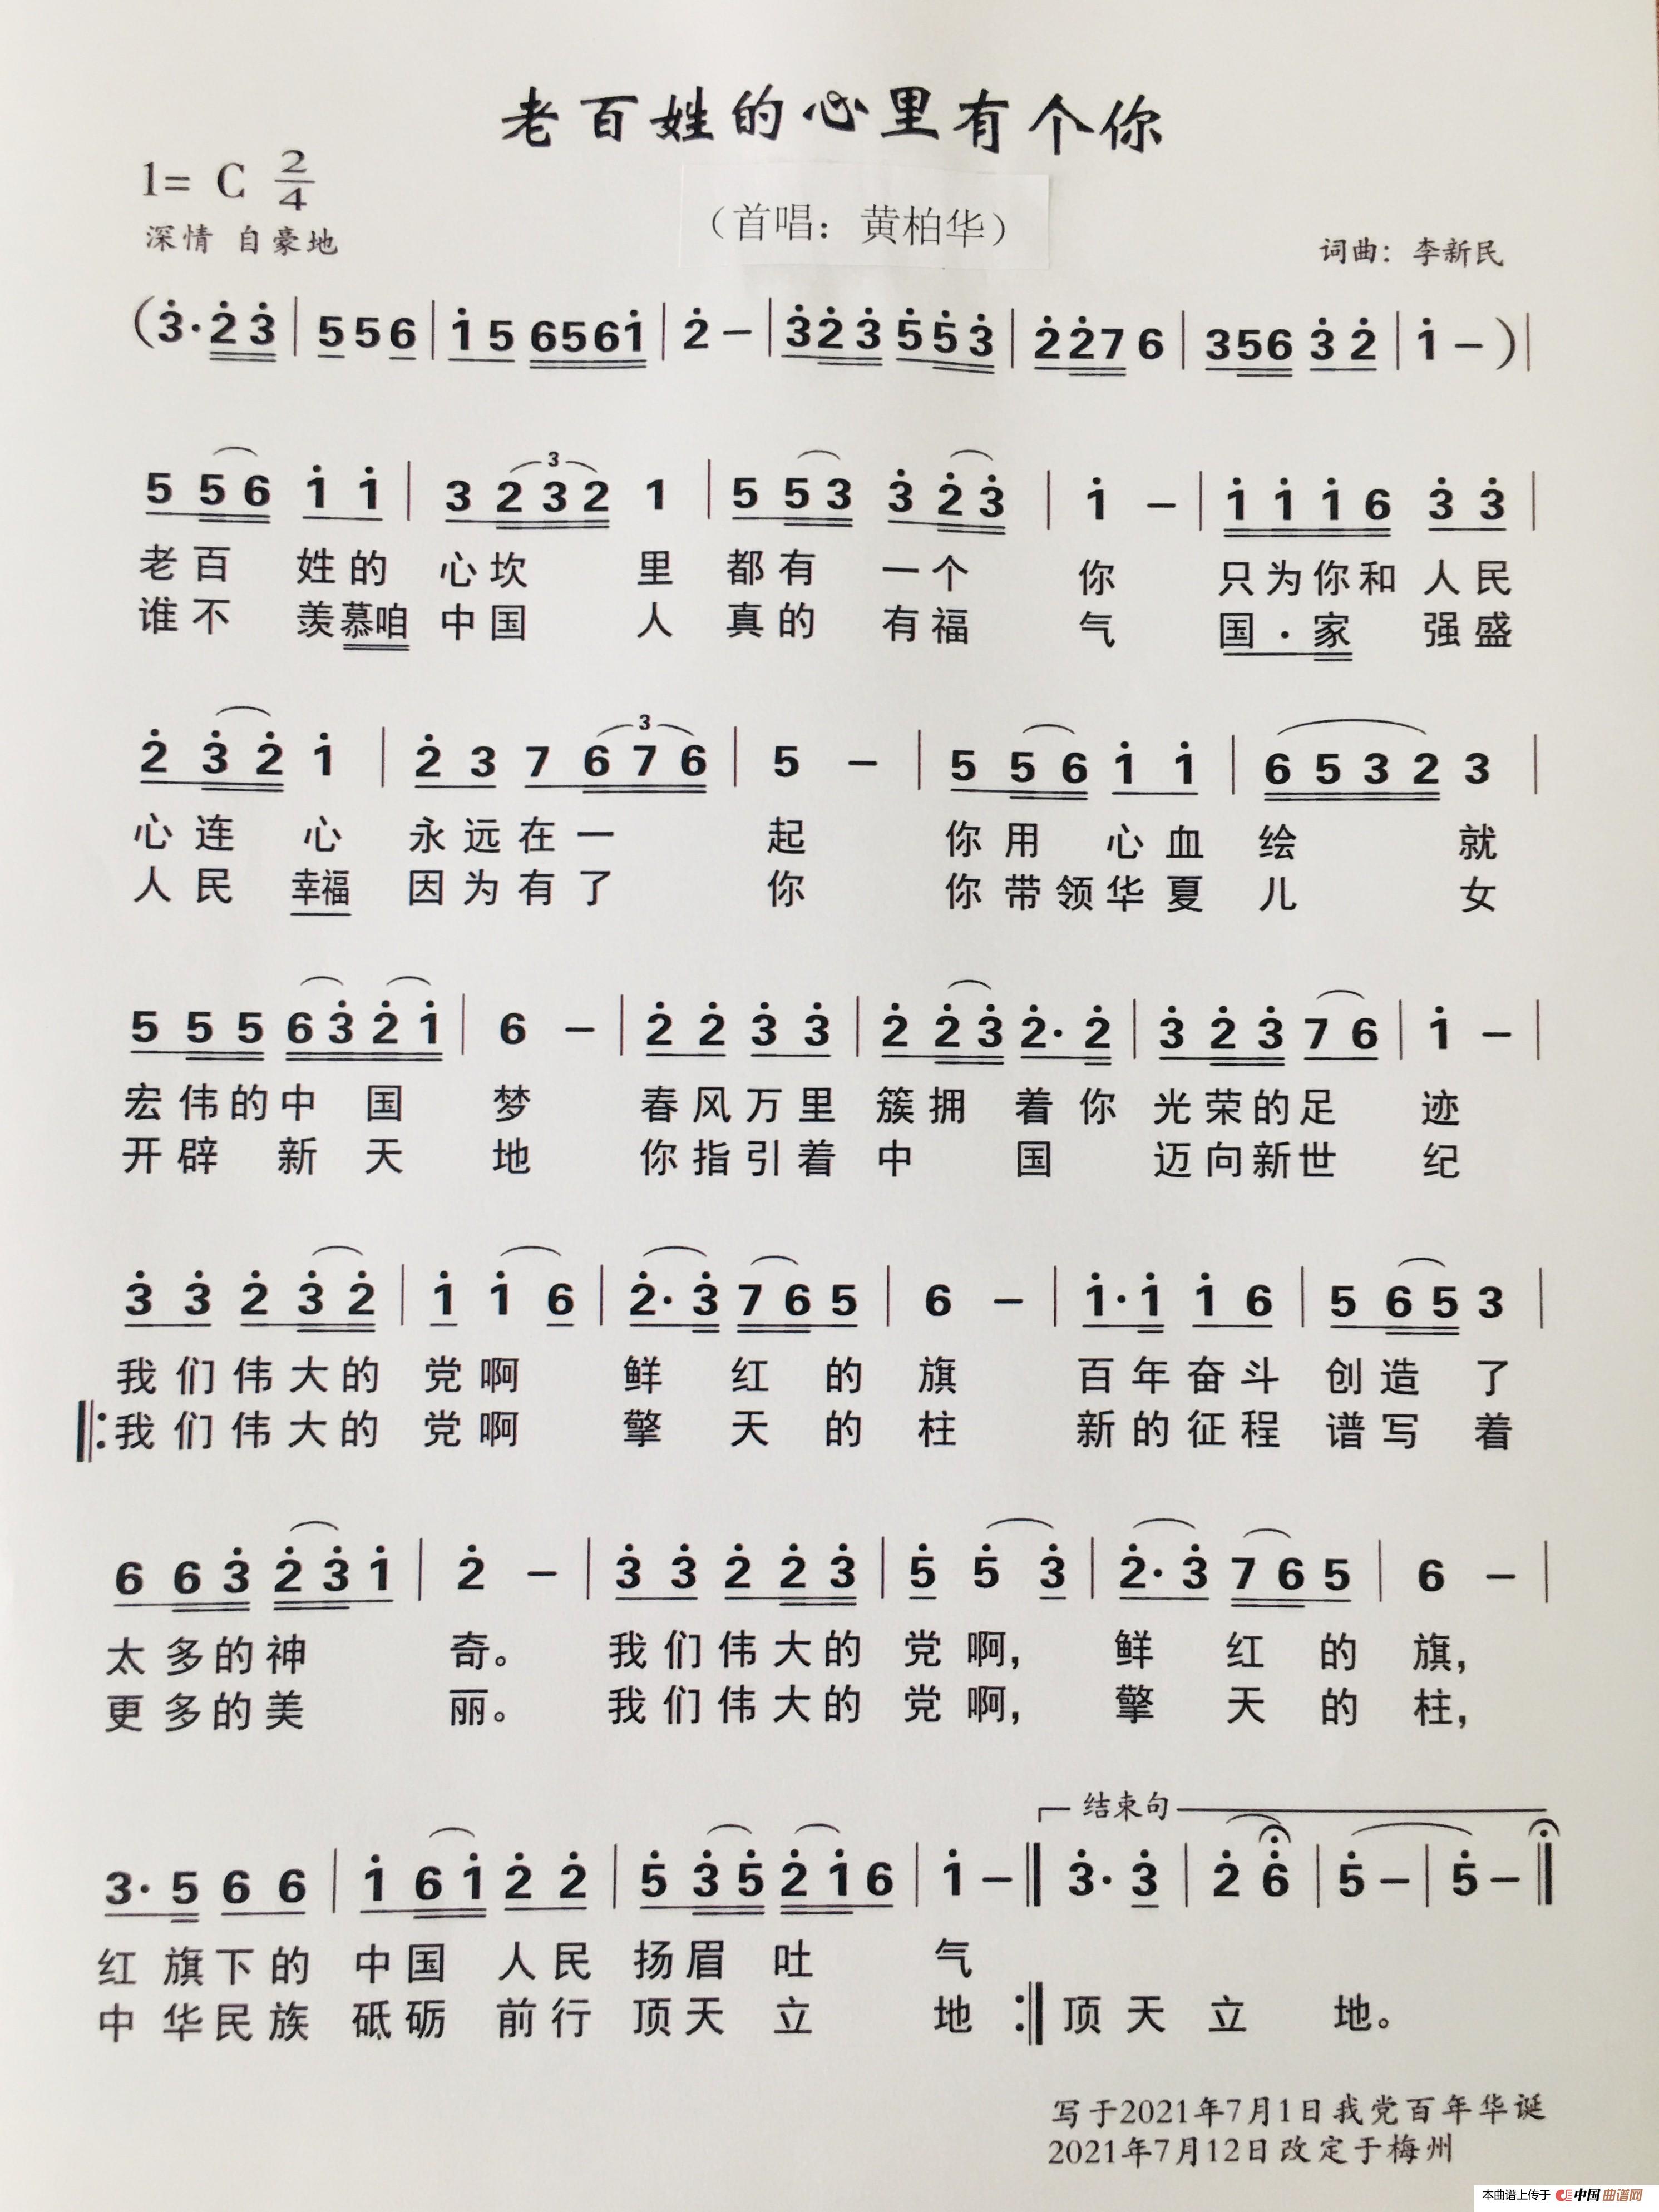 老百姓的心里有个你
1= C 2/4
（首唱：黄柏华）
深情 自豪地
词曲：李新民
(3̇·2̇3̇ | 556 | 1̇5 6561̇ | 2̇ – | 3̇2̇3̇ 5̇5̇3̇ | 2̇2̇7 6 | 356 3̇2̇ | 1̇ – )|
5 56 1̇ 1̇ | 3 232 1 | 5 53 3̇ 2̇3̇ | 1̇ – | 1̇ 1̇ 1̇ 6 3̇ 3̇ |
老百 姓的 心坎 里 都有 一个 你 只为你和 人民
谁不 羡慕咱 中国 人 真的 有福 气 国·家 强盛
2̇ 3̇2̇ 1̇ | 2̇ 3 7 676 | 5 – | 5 56 1̇ 1̇ | 6532 3 |
心连 心 永远在一 起 你用 心血 绘 就
人民 幸福 因为有了 你 你带领华夏 儿 女
5 55 63̇2̇1̇ | 6 – | 2̇ 2̇ 3̇ 3̇ | 2̇ 2̇3̇ 2̇· 2̇ | 3̇ 2̇3̇ 76 | 1̇ – |
宏伟的中 国 梦 春风万里 簇拥 着你 光荣的足 迹
开辟 新 天 地 你指引着 中 国 迈向新世 纪
3̇ 3̇ 2̇ 3̇2̇ | 1̇ 1̇ 6 | 2̇·3̇ 765 | 6 – | 1̇·1̇ 1̇ 6 | 5 65 3 |
我们伟大的 党啊 鲜 红 的 旗 百年奋斗 创造 了
‖:我们伟大的 党啊 擎 天 的 柱 新的征程 谱写 着
6 63̇ 2̇3̇1̇ | 2̇ – | 3̇ 3̇ 2̇ 2̇3̇ | 5̇ 5̇ 3̇ | 2̇·3̇ 765 | 6 – |
太多的神 奇。 我们伟大的 党啊， 鲜 红 的 旗，
更多的美 丽。 我们伟大的 党啊， 擎 天 的 柱，
结束句
3·5 6 6 | 1̇ 61̇ 2̇ 2̇ | 5̇ 3̇5̇ 2̇1̇6 | 1̇ – ‖ 3̇·3̇ | 2̇ 6̇ | 5̇ – | 5̇ – ‖
红旗下的 中国 人民 扬眉 吐 气
中华民族 砥砺 前行 顶天 立 地 :‖ 顶天 立 地。
写于2021年7月1日我党百年华诞
2021年7月12日改定于梅州
本曲谱上传于 中国曲谱网